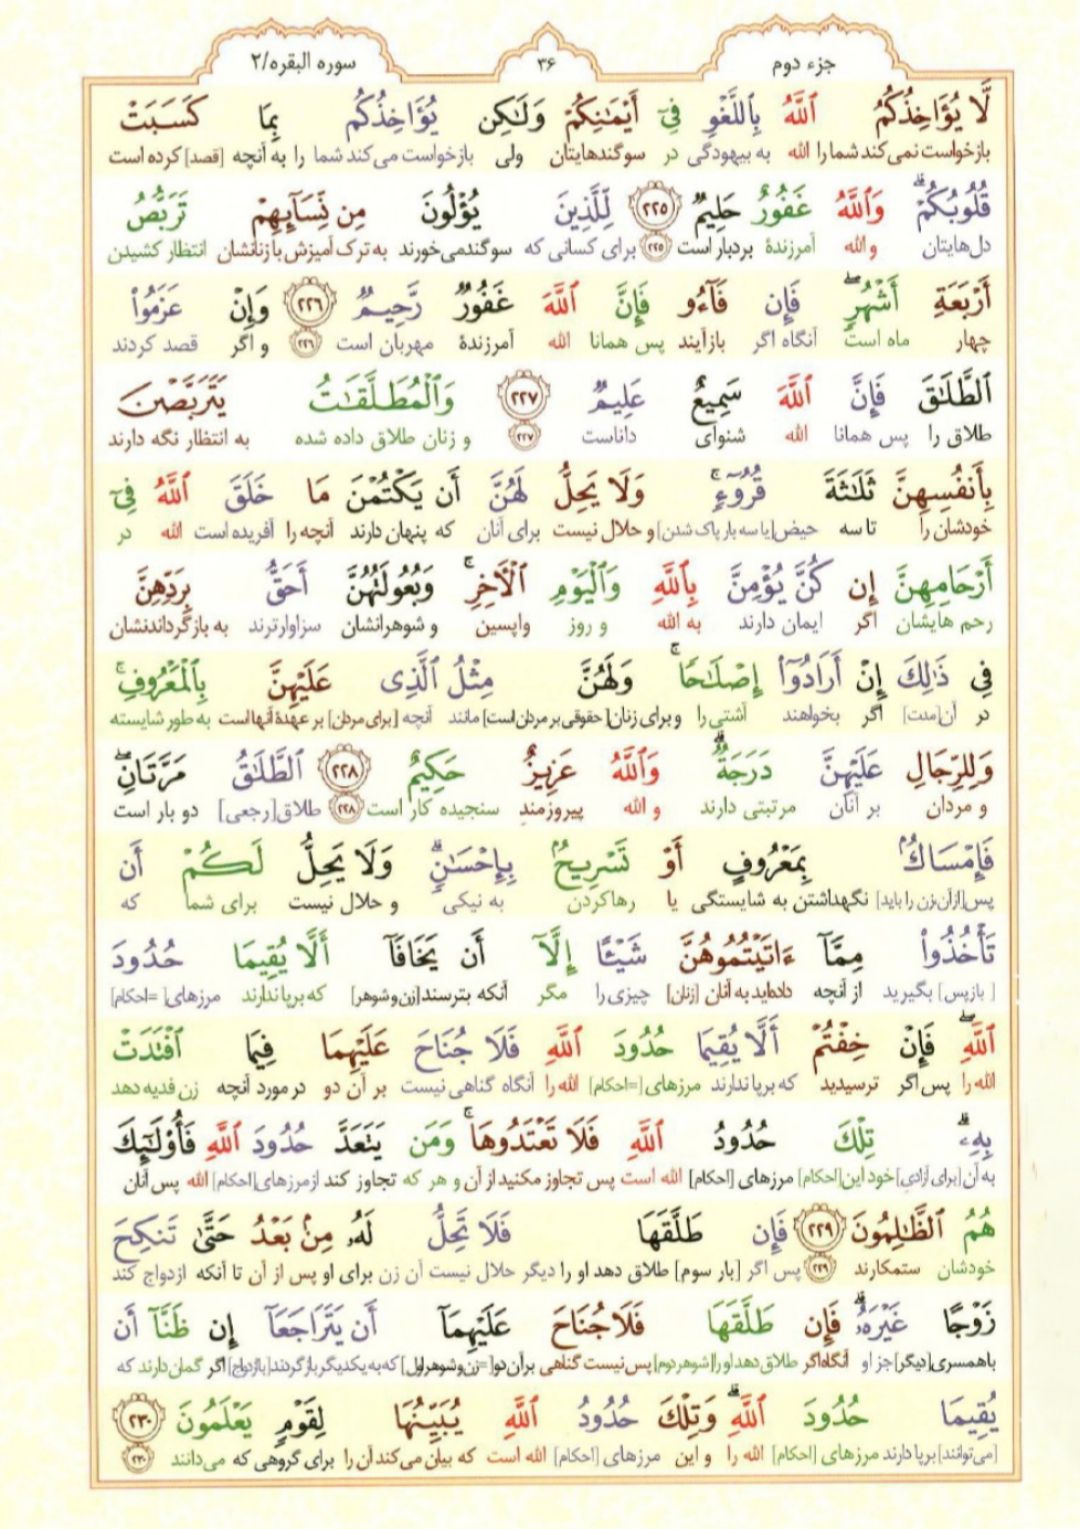 جزء دوم
۳۶
سوره البقره/۲
لَّا يُؤَاخِذُكُمُ ٱللَّهُ بِٱللَّغْوِ فِىٓ أَيْمَـٰنِكُمْ وَلَـٰكِن يُؤَاخِذُكُم بِمَا كَسَبَتْ
بازخواست نمی‌کند شما را الله به بیهودگی در سوگندهایتان ولی بازخواست می‌کند شما را به آنچه [قصد] کرده است
قُلُوبُكُمْ ۗ وَٱللَّهُ غَفُورٌ حَلِيمٌ ۲۲۵ لِّلَّذِينَ يُؤْلُونَ مِن نِّسَآئِهِمْ تَرَبُّصُ
دل‌هایتان و الله آمرزندهٔ بردبار است ۲۲۵ برای کسانی که سوگند می‌خورند به ترک آمیزش با زنانشان انتظار کشیدن
أَرْبَعَةِ أَشْهُرٍ ۖ فَإِن فَآءُو فَإِنَّ ٱللَّهَ غَفُورٌ رَّحِيمٌ ۲۲۶ وَإِنْ عَزَمُوا۟
چهار ماه است آنگاه اگر بازآیند پس همانا الله آمرزندهٔ مهربان است ۲۲۶ و اگر قصد کردند
ٱلطَّلَـٰقَ فَإِنَّ ٱللَّهَ سَمِيعٌ عَلِيمٌ ۲۲۷ وَٱلْمُطَلَّقَـٰتُ يَتَرَبَّصْنَ
طلاق را پس همانا الله شنوای داناست ۲۲۷ و زنان طلاق داده شده به انتظار نگه دارند
بِأَنفُسِهِنَّ ثَلَـٰثَةَ قُرُوٓءٍ ۚ وَلَا يَحِلُّ لَهُنَّ أَن يَكْتُمْنَ مَا خَلَقَ ٱللَّهُ فِىٓ
خودشان را تا سه حیض [یا سه بار پاک شدن] و حلال نیست برای آنان که پنهان دارند آنچه را آفریده است الله در
أَرْحَامِهِنَّ إِن كُنَّ يُؤْمِنَّ بِٱللَّهِ وَٱلْيَوْمِ ٱلْـَٔاخِرِ ۚ وَبُعُولَتُهُنَّ أَحَقُّ بِرَدِّهِنَّ
رحم هایشان اگر ایمان دارند به الله و روز واپسین و شوهرانشان سزاوارترند به بازگرداندنشان
فِى ذَٰلِكَ إِنْ أَرَادُوٓا۟ إِصْلَـٰحًا ۚ وَلَهُنَّ مِثْلُ ٱلَّذِى عَلَيْهِنَّ بِٱلْمَعْرُوفِ ۚ
در آن [مدت] اگر بخواهند آشتی را و برای زنان [حقوقی بر مردان است] مانند آنچه [برای مردان] بر عهدهٔ آنهاست به طور شایسته
وَلِلرِّجَالِ عَلَيْهِنَّ دَرَجَةٌ ۗ وَٱللَّهُ عَزِيزٌ حَكِيمٌ ۲۲۸ ٱلطَّلَـٰقُ مَرَّتَانِ ۖ
و مردان بر آنان مرتبتی دارند و الله پیروزمند سنجیده کار است ۲۲۸ طلاق [رجعی] دو بار است
فَإِمْسَاكٌۢ بِمَعْرُوفٍ أَوْ تَسْرِيحٌۢ بِإِحْسَـٰنٍ ۗ وَلَا يَحِلُّ لَكُمْ أَن
پس [از آن زن را باید] نگهداشتن به شایستگی یا رها کردن به نیکی و حلال نیست برای شما که
تَأْخُذُوا۟ مِمَّآ ءَاتَيْتُمُوهُنَّ شَيْـًٔا إِلَّآ أَن يَخَافَآ أَلَّا يُقِيمَا حُدُودَ
[بازپس] بگیرید از آنچه داده‌اید به آنان [زنان] چیزی را مگر آنکه بترسند [زن و شوهر] که برپا ندارند مرزهای [=احکام]
ٱللَّهِ ۖ فَإِنْ خِفْتُمْ أَلَّا يُقِيمَا حُدُودَ ٱللَّهِ فَلَا جُنَاحَ عَلَيْهِمَا فِيمَا ٱفْتَدَتْ
الله را پس اگر ترسیدید که برپا ندارند مرزهای [=احکام] الله را آنگاه گناهی نیست بر آن دو در مورد آنچه زن فدیه دهد
بِهِۦ ۗ تِلْكَ حُدُودُ ٱللَّهِ فَلَا تَعْتَدُوهَا ۚ وَمَن يَتَعَدَّ حُدُودَ ٱللَّهِ فَأُو۟لَـٰٓئِكَ
به آن [برای آزادی] خود این [احکام] مرزهای [احکام] الله است پس تجاوز مکنید از آن و هر که تجاوز کند از مرزهای [احکام] الله پس آنان
هُمُ ٱلظَّـٰلِمُونَ ۲۲۹ فَإِن طَلَّقَهَا فَلَا تَحِلُّ لَهُۥ مِنۢ بَعْدُ حَتَّىٰ تَنكِحَ
خودشان ستمکارند ۲۲۹ پس اگر [بار سوم] طلاق دهد او را دیگر حلال نیست آن زن برای او پس از آن تا آنکه ازدواج کند
زَوْجًا غَيْرَهُۥ ۗ فَإِن طَلَّقَهَا فَلَا جُنَاحَ عَلَيْهِمَآ أَن يَتَرَاجَعَآ إِن ظَنَّآ أَن
با همسری [دیگر] جز او آنگاه اگر طلاق دهد او را [شوهر دوم] پس نیست گناهی بر آن دو [=زن و شوهر اول] که به یکدیگر بازگردند [با ازدواج] اگر گمان دارند که
يُقِيمَا حُدُودَ ٱللَّهِ ۗ وَتِلْكَ حُدُودُ ٱللَّهِ يُبَيِّنُهَا لِقَوْمٍ يَعْلَمُونَ ۲۳۰
[می‌توانند] برپا دارند مرزهای [احکام] الله را و این مرزهای [احکام] الله است که بیان می‌کند آن را برای گروهی که می‌دانند ۲۳۰